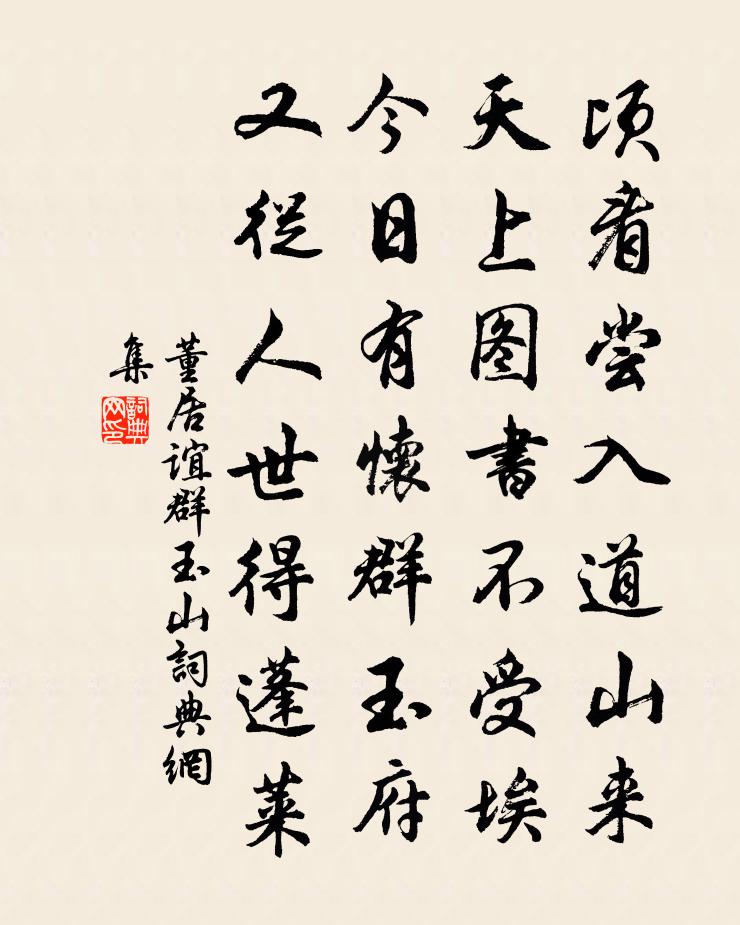 頃者尝入道山来
天上图書不受埃
今日有懷群玉府
又從人世得蓬莱
董居誼群玉山詞典網
集
詞典
网印